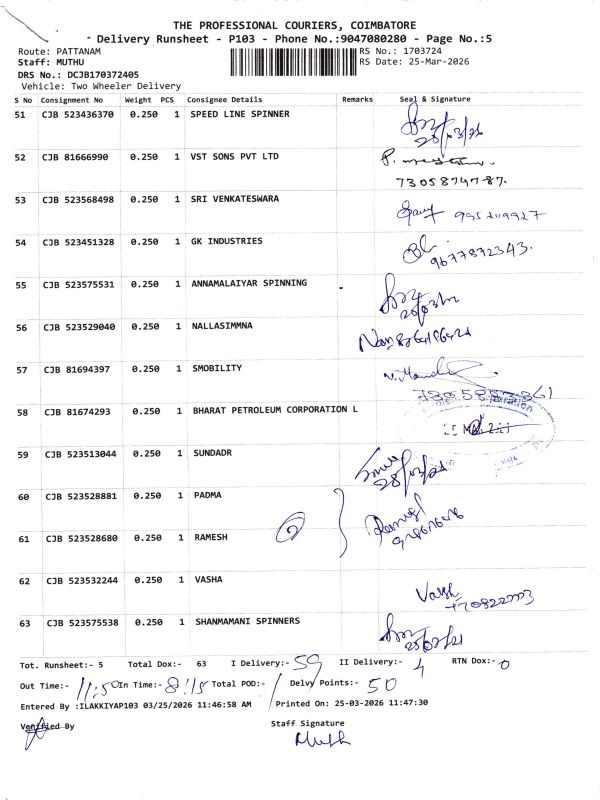 THE PROFESSIONAL COURIERS, COIMBATORE
Delivery Runsheet - P103 - Phone No.:9047080280 - Page No.:5
Route: PATTANAM
RS No.: 1703724
Staff: MUTHU
RS Date: 25-Mar-2026
DRS No.: DCJB170372405
Vehicle: Two Wheeler Delivery
S No Consignment No Weight PCS Consignee Details Remarks Seal & Signature
51 CJB 523436370 0.250 1 SPEED LINE SPINNER
52 CJB 81666990 0.250 1 VST SONS PVT LTD
53 CJB 523568498 0.250 1 SRI VENKATESWARA
54 CJB 523451328 0.250 1 GK INDUSTRIES 9677872343.
55 CJB 523575531 0.250 1 ANNAMALAIYAR SPINNING -
56 CJB 523529040 0.250 1 NALLASIMMNA
57 CJB 81694397 0.250 1 SMOBILITY
58 CJB 81674293 0.250 1 BHARAT PETROLEUM CORPORATION L
59 CJB 523513044 0.250 1 SUNDADR
60 CJB 523528881 0.250 1 PADMA
2
61 CJB 523528680 0.250 1 RAMESH
62 CJB 523532244 0.250 1 VASHA
63 CJB 523575538 0.250 1 SHANMAMANI SPINNERS
Tot. Runsheet:- 5 Total Dox:- 63 I Delivery:- 59 II Delivery:- 4 RTN Dox:- 0
Out Time:- 11:50 In Time:- 8:15 Total POD:- / Delvy Points:- 50
Entered By :ILAKKIYAP103 03/25/2026 11:46:58 AM Printed On: 25-03-2026 11:47:30
Verified By Staff Signature
Muth